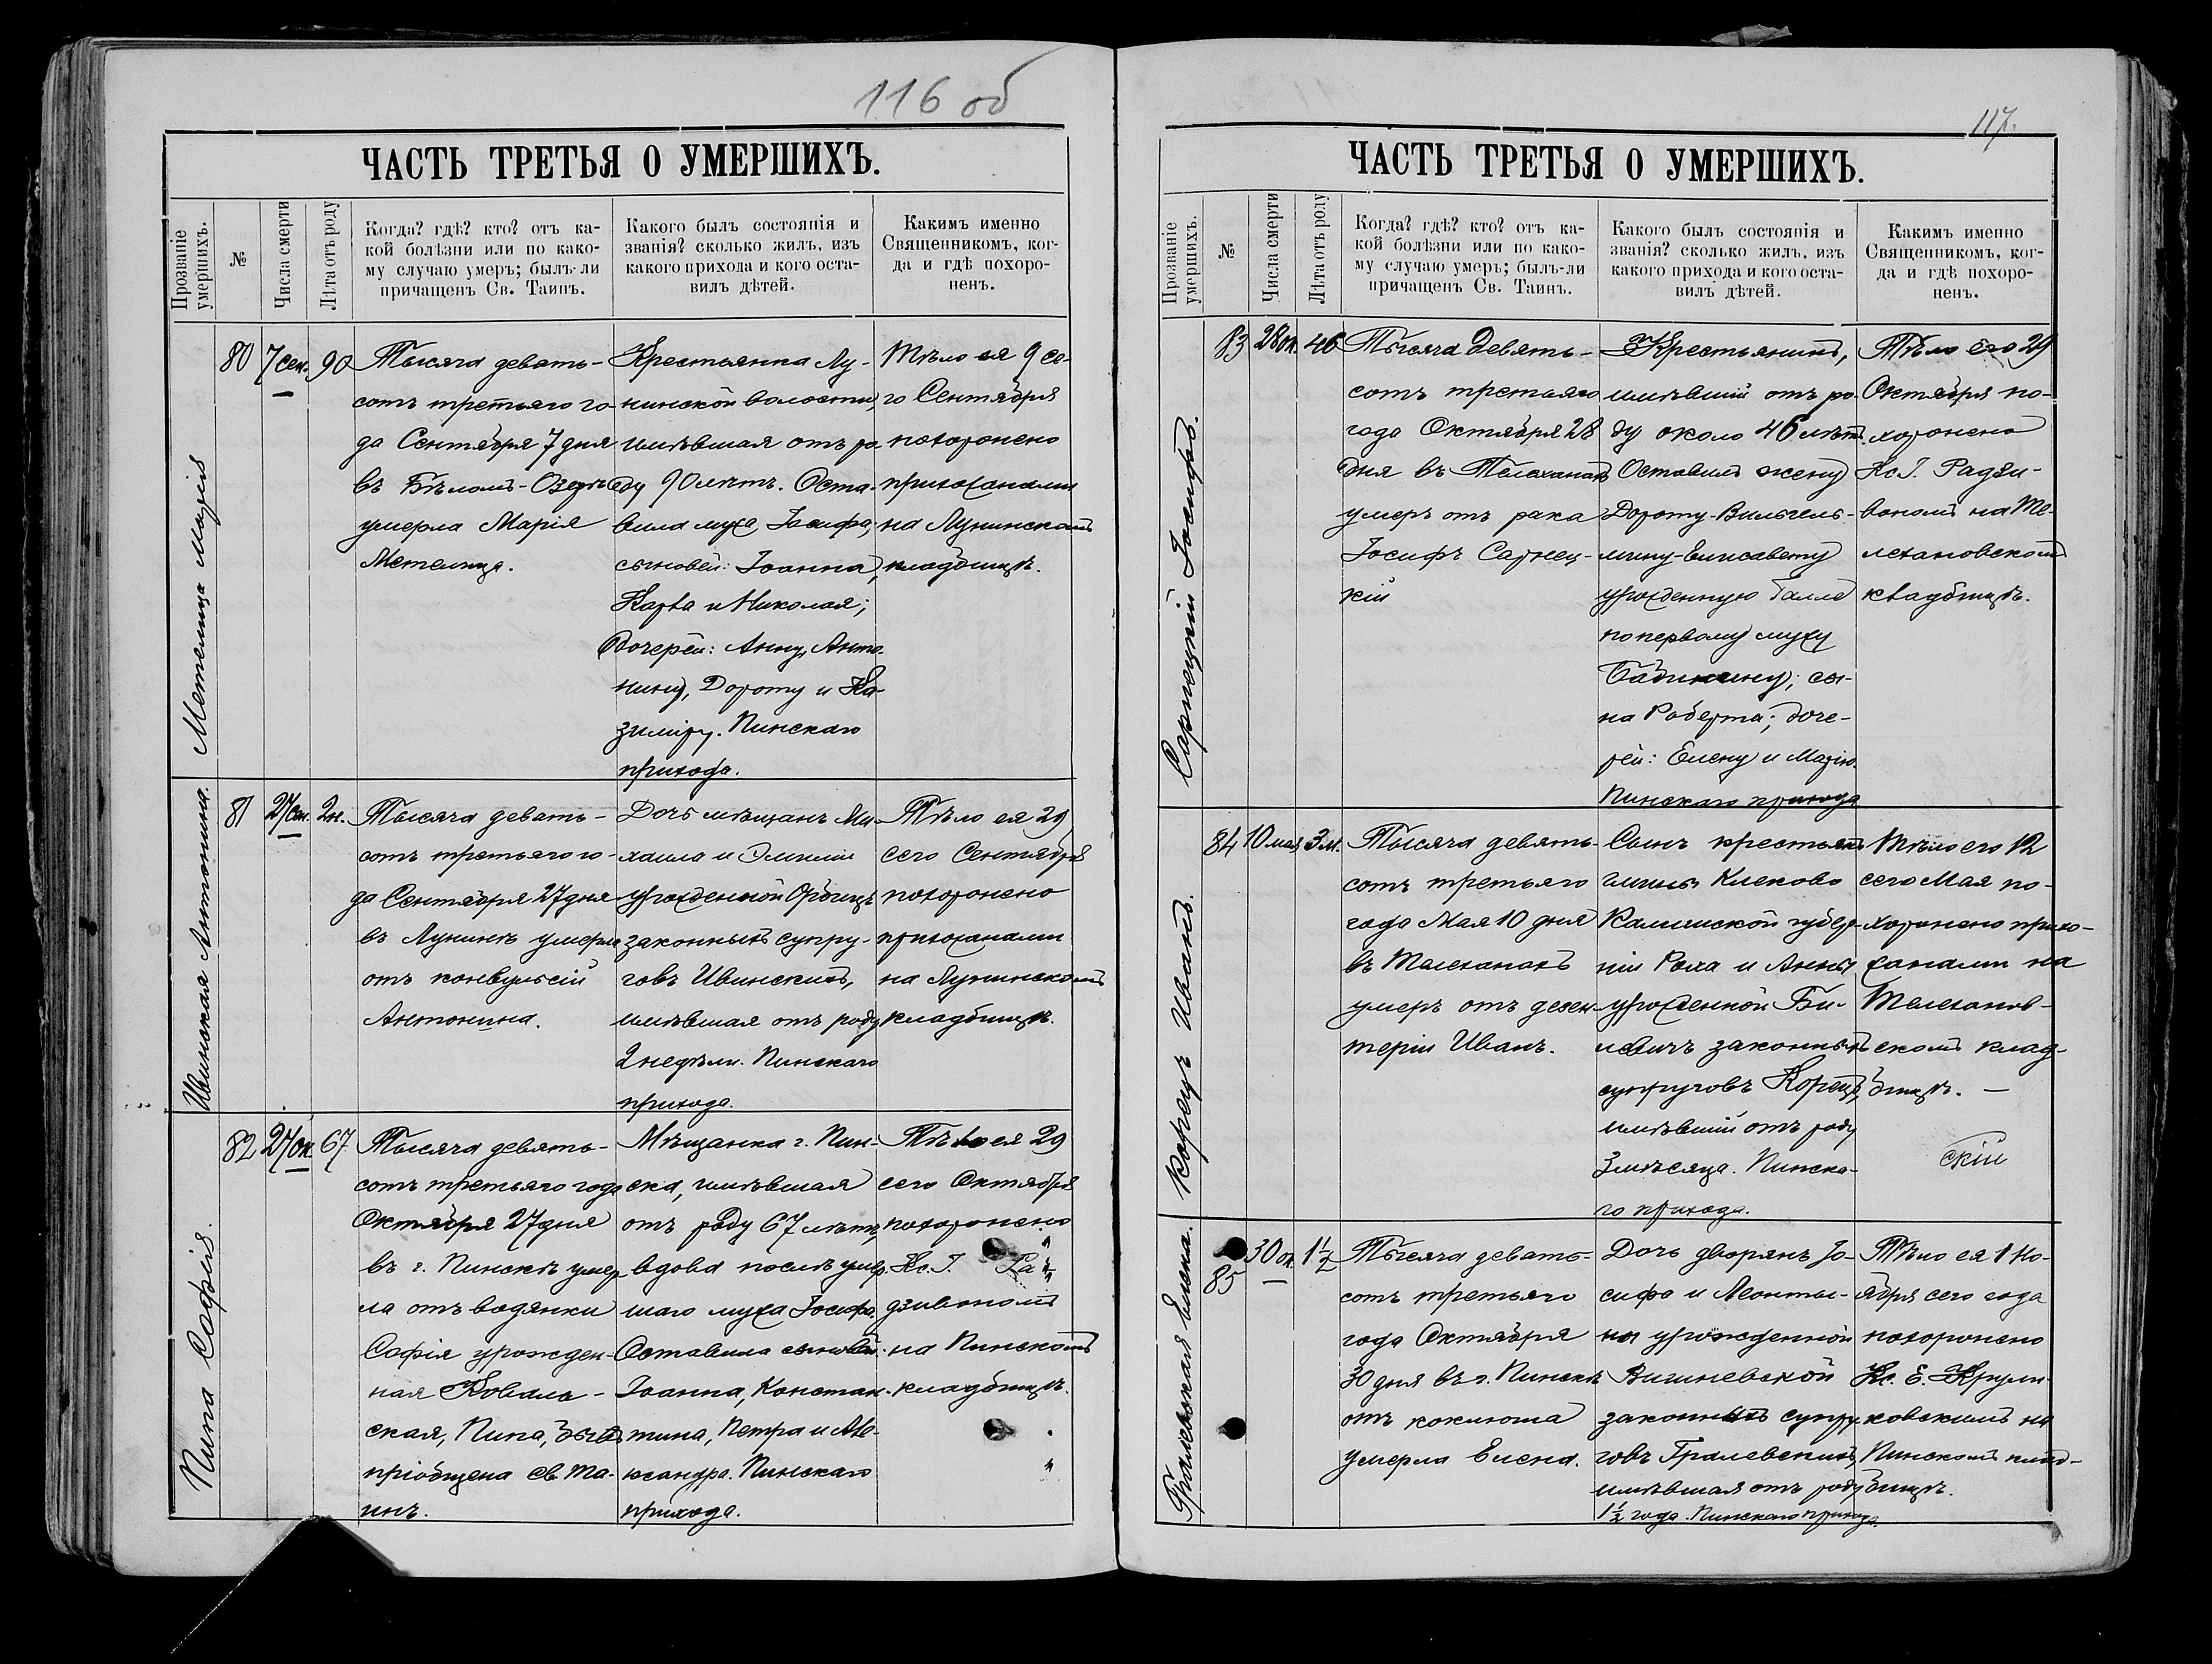 116 об
ЧАСТЬ ТРЕТЬЯ О УМЕРШИХЪ.
Прозваніе
умершихъ.
№
Числа смерти
Лѣта отъ роду
Когда? гдѣ? кто? отъ ка-
кой болѣзни или по како-
му случаю умеръ; былъ-ли
причащенъ Св. Таинъ.
Какого былъ состоянія и
званія? сколько жилъ, изъ
какого прихода и кого оста-
вилъ дѣтей.
Какимъ именно
Священникомъ, ког-
да и гдѣ похоро-
ненъ.
Метелица Марія
80
7 сен.
90
Тысяча девять-
сотъ третьяго го-
да Сентября 7 дня
въ Бѣломъ-Озерѣ
умерла Марія
Метелица.
Крестьянка Лу-
нинской волости,
имѣвшая отъ ро-
ду 90 лѣтъ. Оста-
вила мужа Іосифа,
сыновей: Іоанна,
Карла и Николая;
дочерей: Анну, Анто-
нину, Дороту и Ка-
зиміру. Пинскаго
прихода.
Тѣло ея 9 се-
го Сентября
похоронено
прихожанами
на Лунинскомъ
кладбищѣ.
Ивинская Антонина.
81
27 сен.
2 н.
Тысяча девять-
сотъ третьяго го-
да Сентября 27 дня
въ Лунинѣ умерла
отъ конвульсій
Антонина.
Дочь мѣщанъ Ми-
хаила и Эмиліи
урожденной
законныхъ супру-
говъ Ивинскихъ,
имѣвшая отъ роду
2 недѣли. Пинскаго
прихода.
Тѣло ея 29
сего Сентября
похоронено
прихожанами
на Лунинскомъ
кладбищѣ.
Пипа Софія.
82
27 ок.
67
Тысяча девять-
сотъ третьяго года
Октября 27 дня
въ г. Пинскѣ умер-
ла отъ водянки
Софія урожден-
ная Коваль-
ская, Пипа, бывъ
пріобщена Св. Та-
инъ.
Мѣщанка г. Пин-
ска, имѣвшая
отъ роду 67 лѣтъ,
вдова послѣ умер-
шаго мужа Іосифа.
Оставила сыновей:
Іоанна, Констан-
тина, Петра и Але-
ксандра. Пинскаго
прихода.
Тѣло ея 29
сего Октября
похоронено
Кс. І. Ра-
дзивономъ
на Пинскомъ
кладбищѣ.
117.
ЧАСТЬ ТРЕТЬЯ О УМЕРШИХЪ.
Прозваніе
умершихъ.
№
Числа смерти
Лѣта отъ роду
Когда? гдѣ? кто? отъ ка-
кой болѣзни или по како-
му случаю умеръ; былъ-ли
причащенъ Св. Таинъ.
Какого былъ состоянія и
званія? сколько жилъ, изъ
какого прихода и кого оста-
вилъ дѣтей.
Какимъ именно
Священникомъ, ког-
да и гдѣ похоро-
ненъ.
Сарнецкій Іосифъ.
83
28 ок.
46
Тысяча девять-
сотъ третьяго
года Октября 28
дня въ Телеханахъ
умеръ отъ рака
Іосифъ Сарнец-
кій
Крестьянинъ,
имѣвшій отъ ро-
ду около 46 лѣтъ.
Оставилъ жену
Дороту-Вильгель-
мину-Елисавету
урожденную
по первому мужу
сы-
на Роберта; доче-
рей: Елену и Марію.
Пинскаго прихода
Тѣло его 29
Октября по-
хоронено
Кс. І. Радзи-
вономъ на Те-
лехановскомъ
кладбищѣ.
Корецъ Иванъ.
84
10 мая
3 м.
Тысяча девять-
сотъ третьяго
года Мая 10 дня
въ Телеханахъ
умеръ отъ дезен-
теріи Иванъ.
Сынъ крестьянъ
гмины Клеково
Калишской губер-
ніи Роха и Анны
урожденной Би-
левичъ законныхъ
супруговъ Корецъ,
имѣвшій отъ роду
3 мѣсяца. Пинска-
го прихода.
Тѣло его 12
сего Мая по-
хоронено прихо-
жанами на
Телеханов-
скомъ клад-
бищѣ. —
скій
Гралевская Елена.
85
30 ок.
1 1/2
Тысяча девять-
сотъ третьяго
года Октября
30 дня въ г. Пинскѣ
отъ коклюша
умерла Елена.
Дочь дворянъ Іо-
сифа и Леонти-
ны урожденной
Вишневской
законныхъ супру-
говъ Гралевскихъ,
имѣвшая отъ роду
1 1/2 года. Пинскаго прихода.
Тѣло ея 1 Но-
ября сего года
похоронено
Кс. Е. Крули-
ковскимъ на
Пинскомъ клад-
бищѣ.